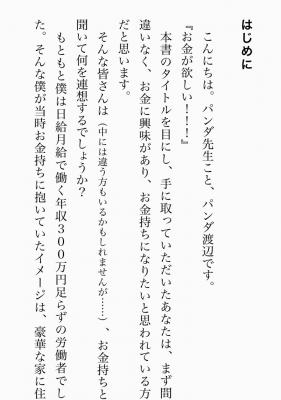 はじめに
こんにちは。パンダ先生こと、パンダ渡辺です。
『お金が欲しい！！！』
本書のタイトルを目にし、手に取っていただいたあなたは、まず間
違いなく、お金に興味があり、お金持ちになりたいと思われている方
だと思います。
そんな皆さんは（中には違う方もいるかもしれませんが……）、お金持ちと
聞いて何を連想するでしょうか？
もともと僕は日給月給で働く年収３００万円足らずの労働者でし
た。そんな僕が当時お金持ちに抱いていたイメージは、豪華な家に住